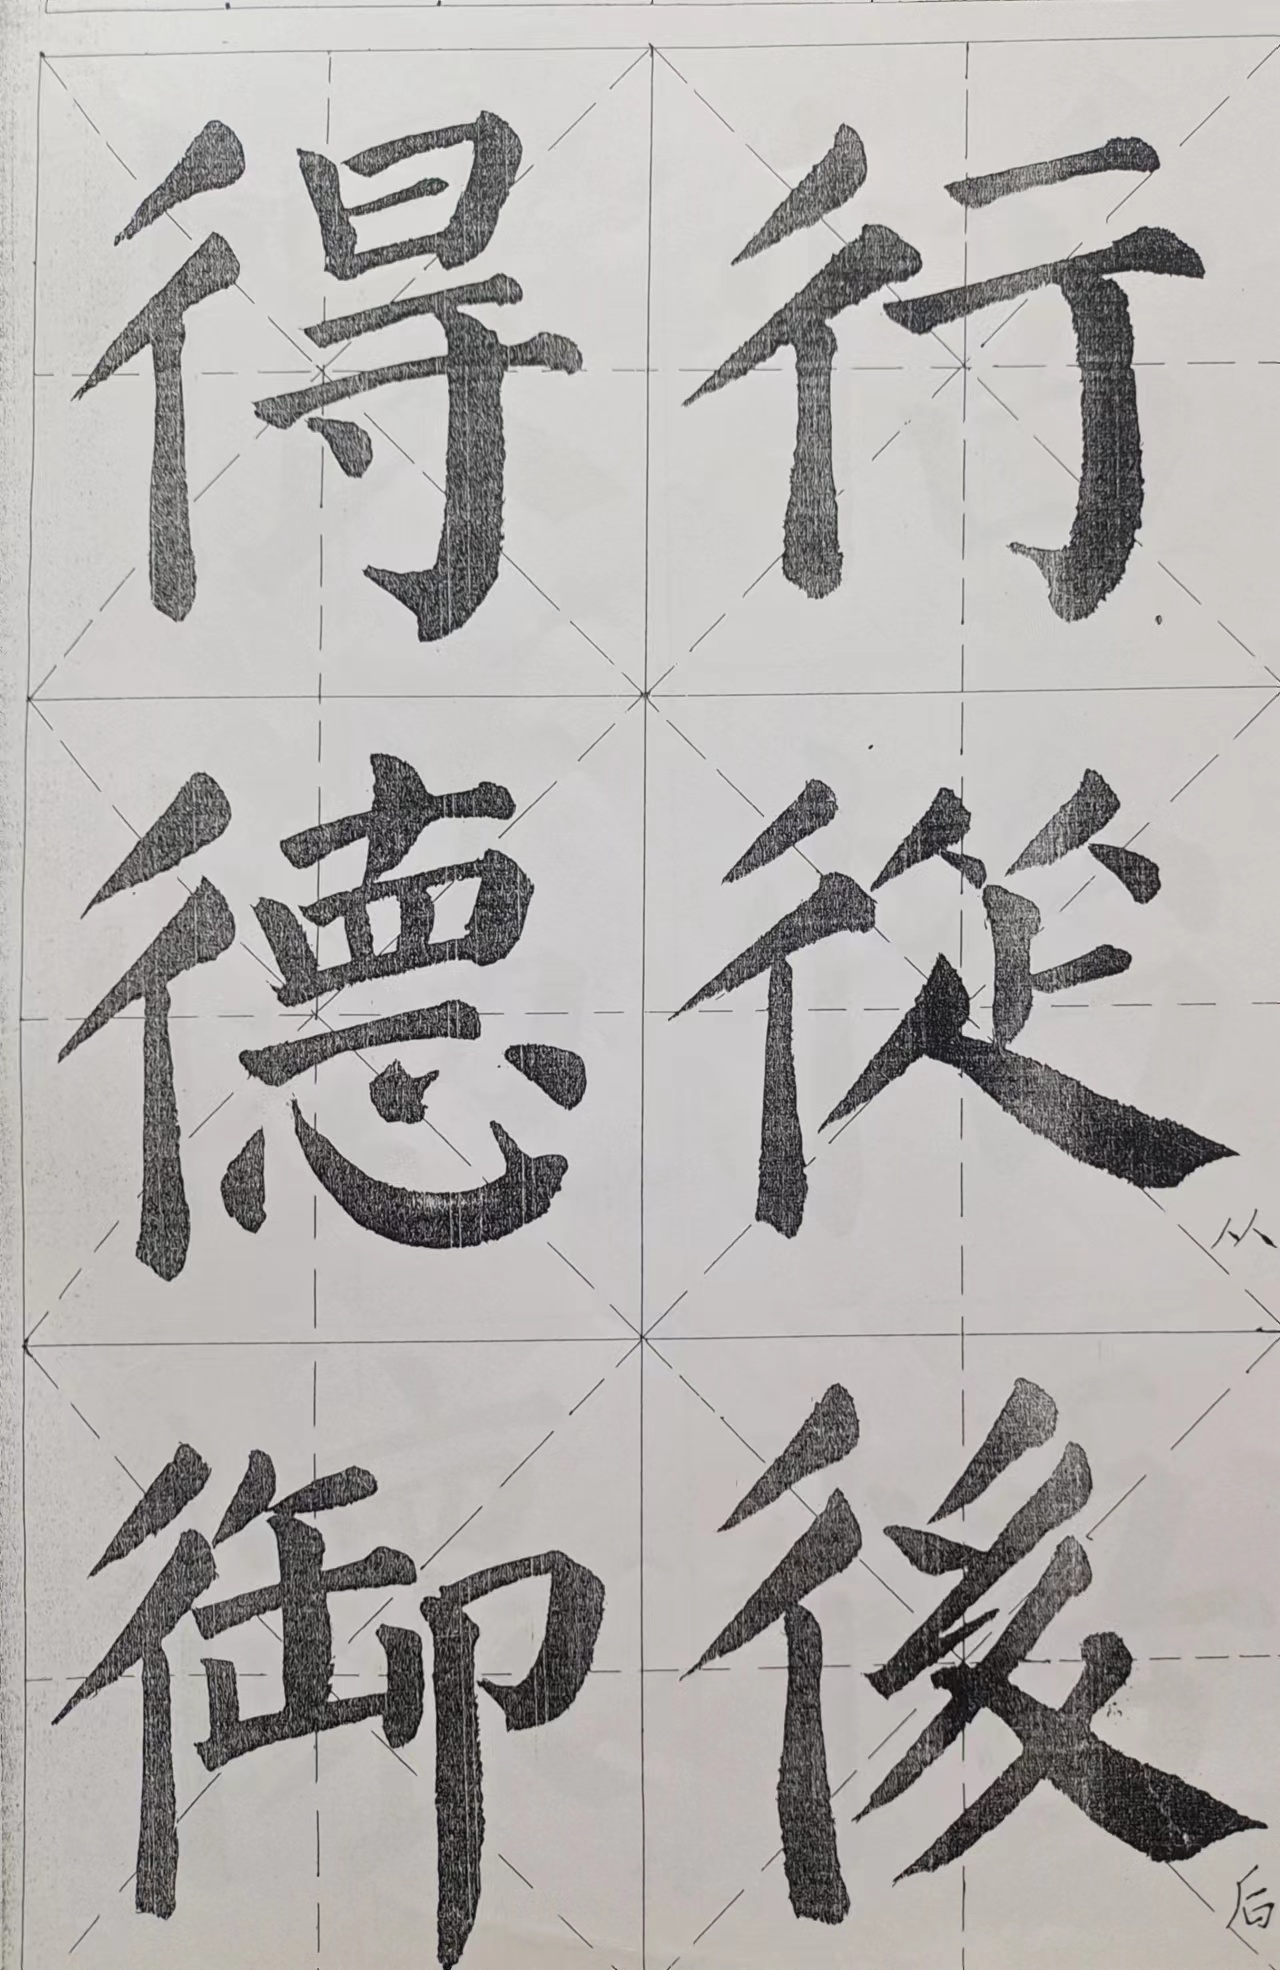 行
從
从
後
后
得
德
御